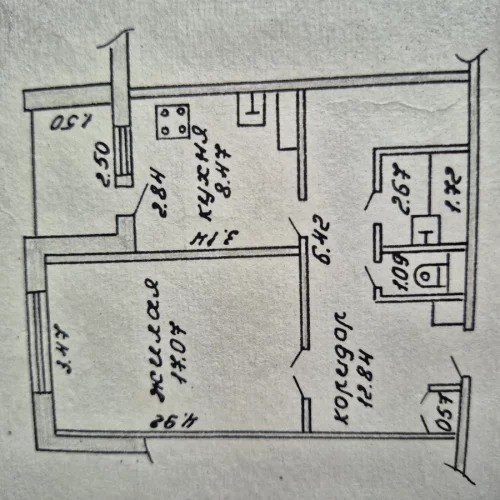 1.50
2.50
2.84
кухня
8.47
3.14
6.42
2.67
1.72
1.09
3.47
жилая
17.07
4.92
коридор
12.84
0.57